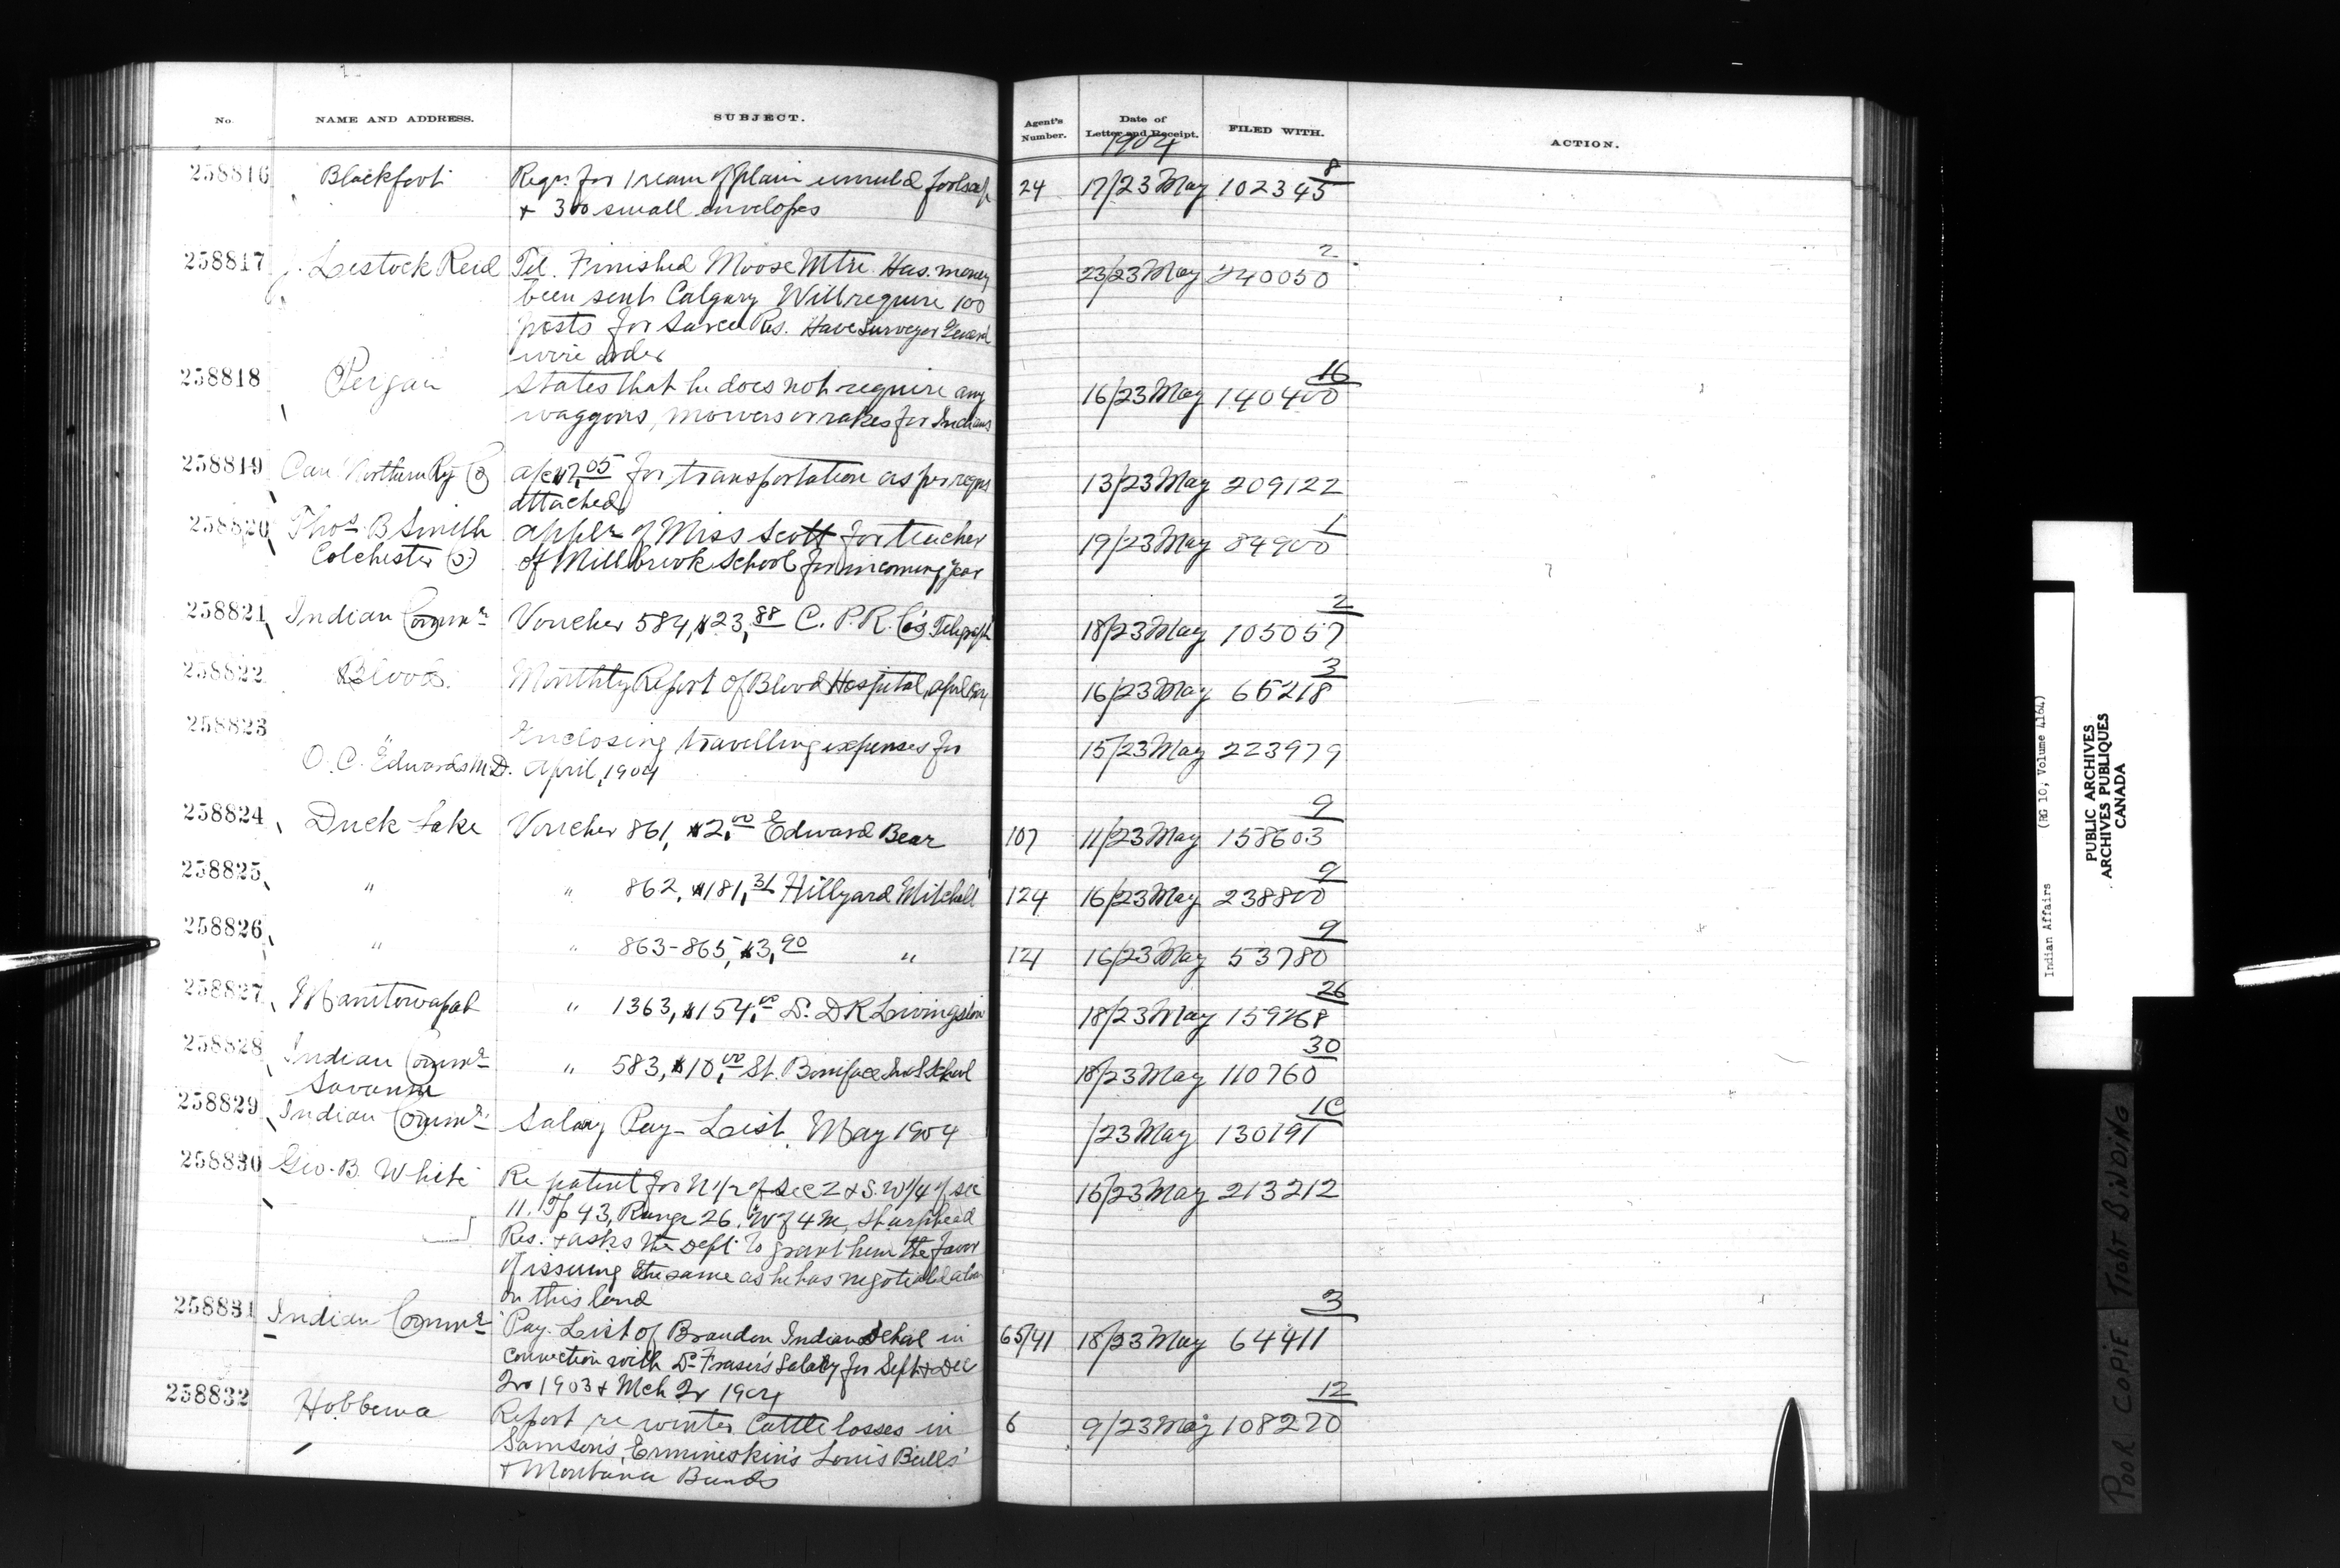 No. NAME AND ADDRESS. SUBJECT. Agent's Number. Date of Letter and Receipt. FILED WITH. ACTION.
1904
258816 Blackfoot Reqn. for 1 ream of plain unruled foolscap 24 17/23 May 102345 8
+ 300 small envelopes
258817 J. Lestock Reid Tel. Finished Moose Mtn. Has money 23/23 May 240050 2
been sent Calgary Will require 100
posts for Sarcee Res. Have Surveyor General
wire order
258818 Peigan States that he does not require any 16/23 May 140400 16
waggons, mowers or rakes for Indians
258819 Can Northern Ry Co a/c for transportation as per reqns 13/23 May 209122
attached
258820 Thos. B Smith appln. of Miss Scott for teacher 19/23 May 84900 1
Colchester Co. of Millbrook School for incoming year
258821 Indian Commr. Voucher 584, $23.88 C. P. R. Co's Telegraph 18/23 May 105057 2
258822 Blood. Monthly Report of Blood Hospital, April 1904 16/23 May 65218 3
258823 " Enclosing travelling expenses for 15/23 May 223979
O. C. Edwards M.D. April, 1904
258824 Duck Lake Voucher 861, $2.00 Edward Bear 107 11/23 May 158603 9
258825 " " 862, $181.31 Hillyard Mitchell 124 16/23 May 238800 9
258826 " " 863-865, $3.90 " 121 16/23 May 53780 9
258827 Manitowapah " 1363, $154.00 Dr. D R Livingston 18/23 May 159268 26
258828 Indian Commr. " 583, $10.00 St. Boniface Ind School 18/23 May 110760 30
Savanne
258829 Indian Commr. Salary Pay-List. May 1904 /23 May 130191
258830 Geo. B. White Re patent for N 1/2 of Sec 2 & S.W 1/4 of sec 16/23 May 213212
11. Tp 43, Range 26. W of 4 M, Sharphead
Res. + asks the Dept. to grant him the favor
of issuing the same as he has negotiated a loan
on this land
258831 Indian Commr. Pay-List of Brandon Indian School in 65/41 18/23 May 64411 3
connection with Dr Fraser's Salary for Sept & Dec
Qr 1903 & Mch Qr 1904
258832 Hobbema Report re winter Cattle losses in 6 9/23 May 108270 12
Samson's, Ermineskin's Louis Bull's
+ Montana Bands
Indian Affairs (RG 10, Volume 4164)
PUBLIC ARCHIVES
ARCHIVES PUBLIQUES
CANADA
POOR COPIE TIGHT BINDING